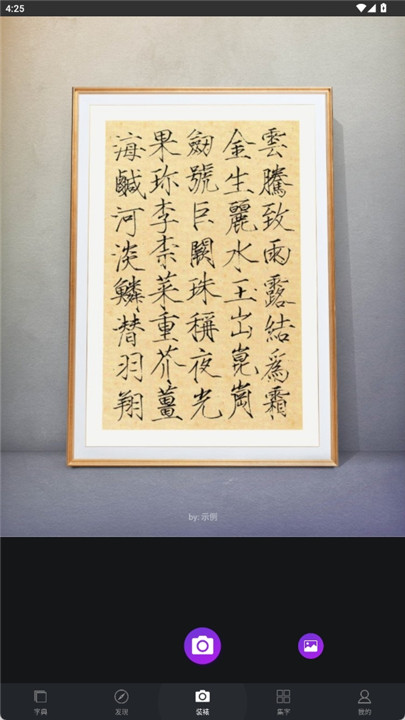 4:25
雲騰致雨露結為霜
金生麗水玉出崑崗
劒號巨闕珠稱夜光
果珍李柰菜重芥薑
海鹹河淡鱗潜羽翔
by: 示例
字典
发现
装裱
集字
我的